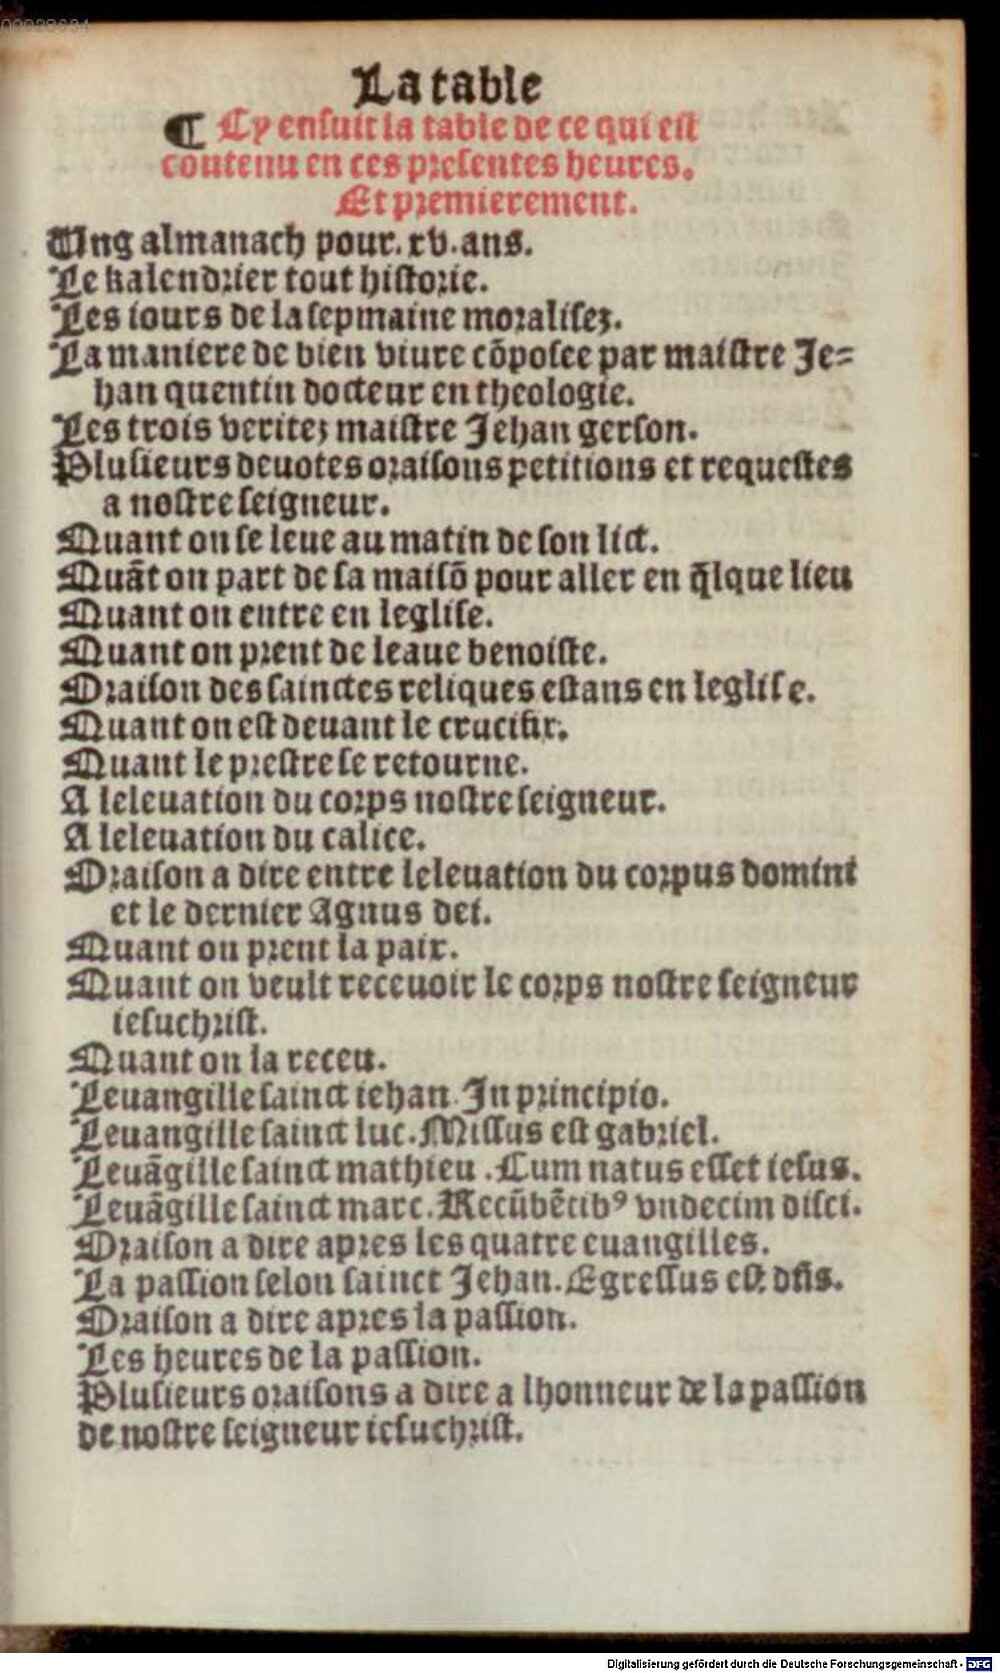 00028634
La table
¶ Cy ensuit la table de ce qui est
contenu en ces presentes heures.
Et premierement.
Ung almanach pour.xv.ans.
Le kalendrier tout historie.
Les iours de la sepmaine moralisez.
La maniere de bien viure cõposee par maistre Je=
han quentin docteur en theologie.
Les trois veritez maistre Jehan gerson.
Plusieurs deuotes oraisons petitions et requestes
a nostre seigneur.
Quant on se leue au matin de son lict.
Quãt on part de sa maisõ pour aller en q̃lque lieu
Quant on entre en leglise.
Quant on prent de leaue benoiste.
Oraison des sainctes reliques estans en leglise.
Quant on est deuant le crucifix.
Quant le prestre se retourne.
A leleuation du corps nostre seigneur.
A leleuation du calice.
Oraison a dire entre leleuation du corpus domini
et le dernier Agnus dei.
Quant on prent la paix.
Quant on veult receuoir le corps nostre seigneur
iesuchrist.
Quant on la receu.
Leuangille sainct iehan. In principio.
Leuangille sainct luc. Missus est gabriel.
Leuãgille sainct mathieu. Cum natus esset iesus.
Leuãgille sainct marc. Recũbẽtibꝰ vndecim disci.
Oraison a dire apres les quatre euangilles.
La passion selon sainct Jehan. Egressus est dñs.
Oraison a dire apres la passion.
Les heures de la passion.
Plusieurs oraisons a dire a lhonneur de la passion
de nostre seigneur iesuchrist.
Digitalisierung gefördert durch die Deutsche Forschungsgemeinschaft - DFG